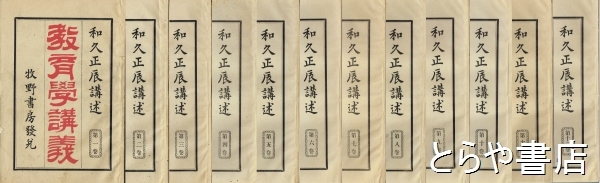 教育學講義
牧野書房發兌
和久正辰講述
第一卷
和久正辰講述
第二卷
和久正辰講述
第三卷
和久正辰講述
第四卷
和久正辰講述
第五卷
和久正辰講述
第六卷
和久正辰講述
第七卷
和久正辰講述
第八卷
和久正辰講述
和久正辰講述
第十卷
和久正辰講述
和久正辰講述
とらや書店